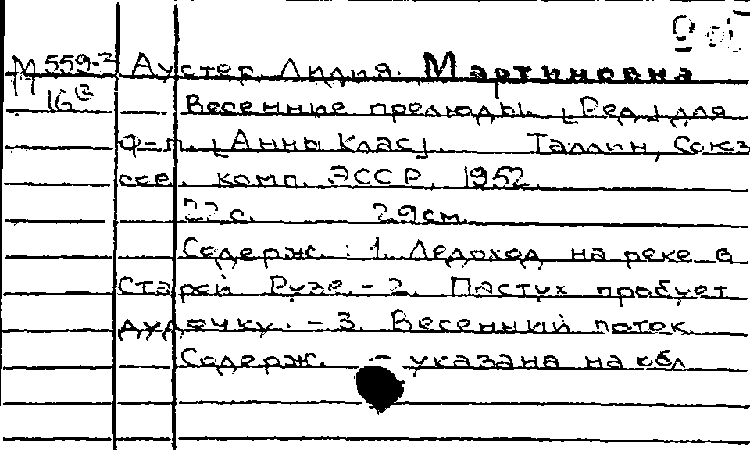 М 559-2 Аустер, Лидия Мартиновна
16
Весенние прелюды. [Ред.] для
ф-п. [Анны Клас]. Таллин, Союз
сов. комп. ЭССР, 1952.
22 с. 29 см.
Содерж.: 1. Ледоход на реке в
Старой Рузе. - 2. Пастух пробует
дудочку. - 3. Весенний поток
Содерж. - указана на обл